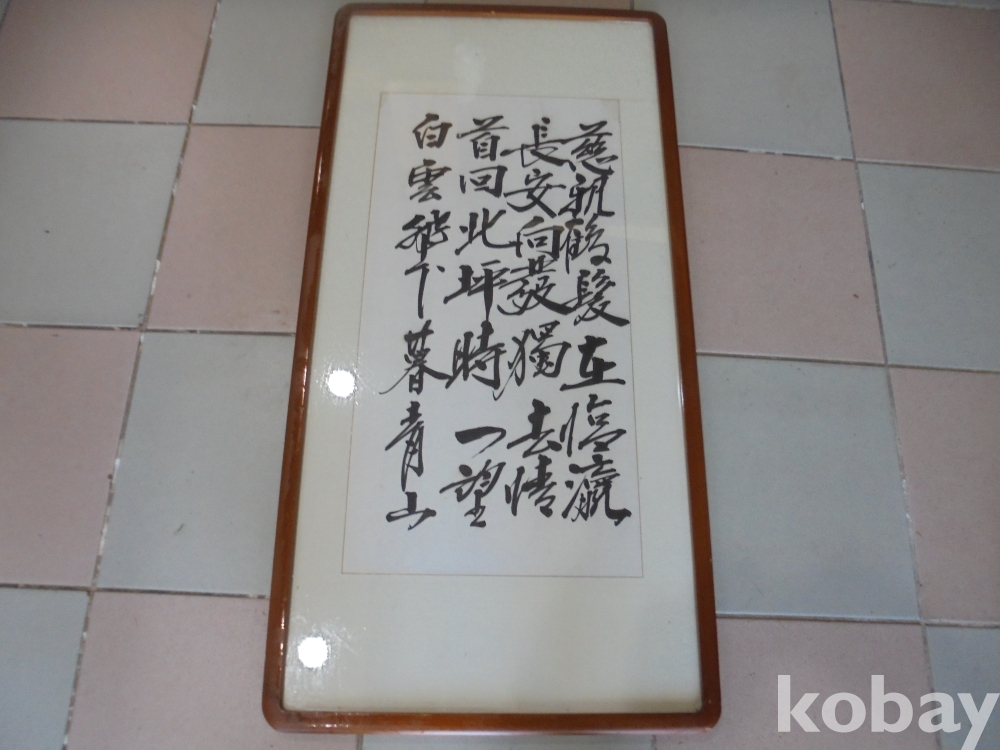 慈親鶴髮在臨瀛
長安向發獨去情
首回北坪時一望
白雲飛下暮青山
kobay